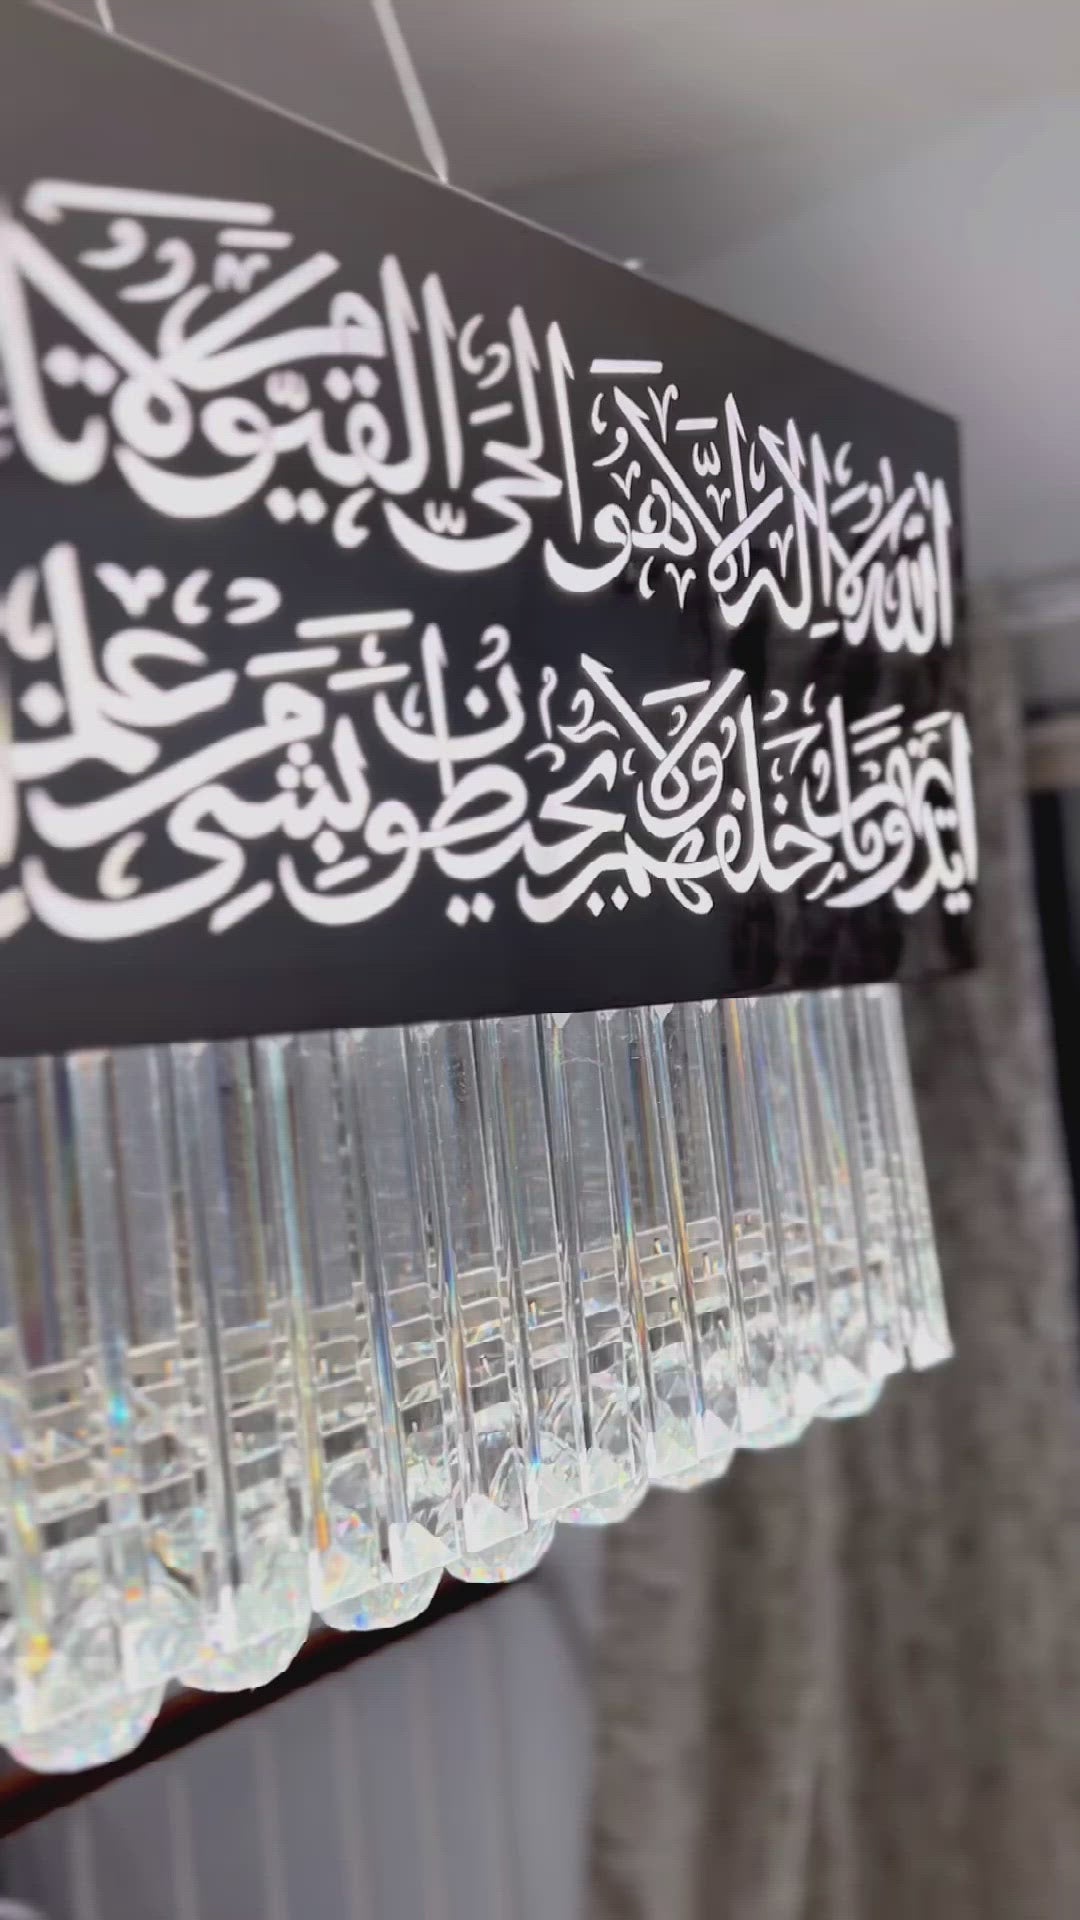 اللّٰهُ لَا إِلٰهَ إِلَّا هُوَ الْحَيُّ الْقَيُّومُ لَا تَأ
أَيْدِيهِمْ وَمَا خَلْفَهُمْ وَلَا يُحِيطُونَ بِشَيْءٍ مِنْ عِلْمِ